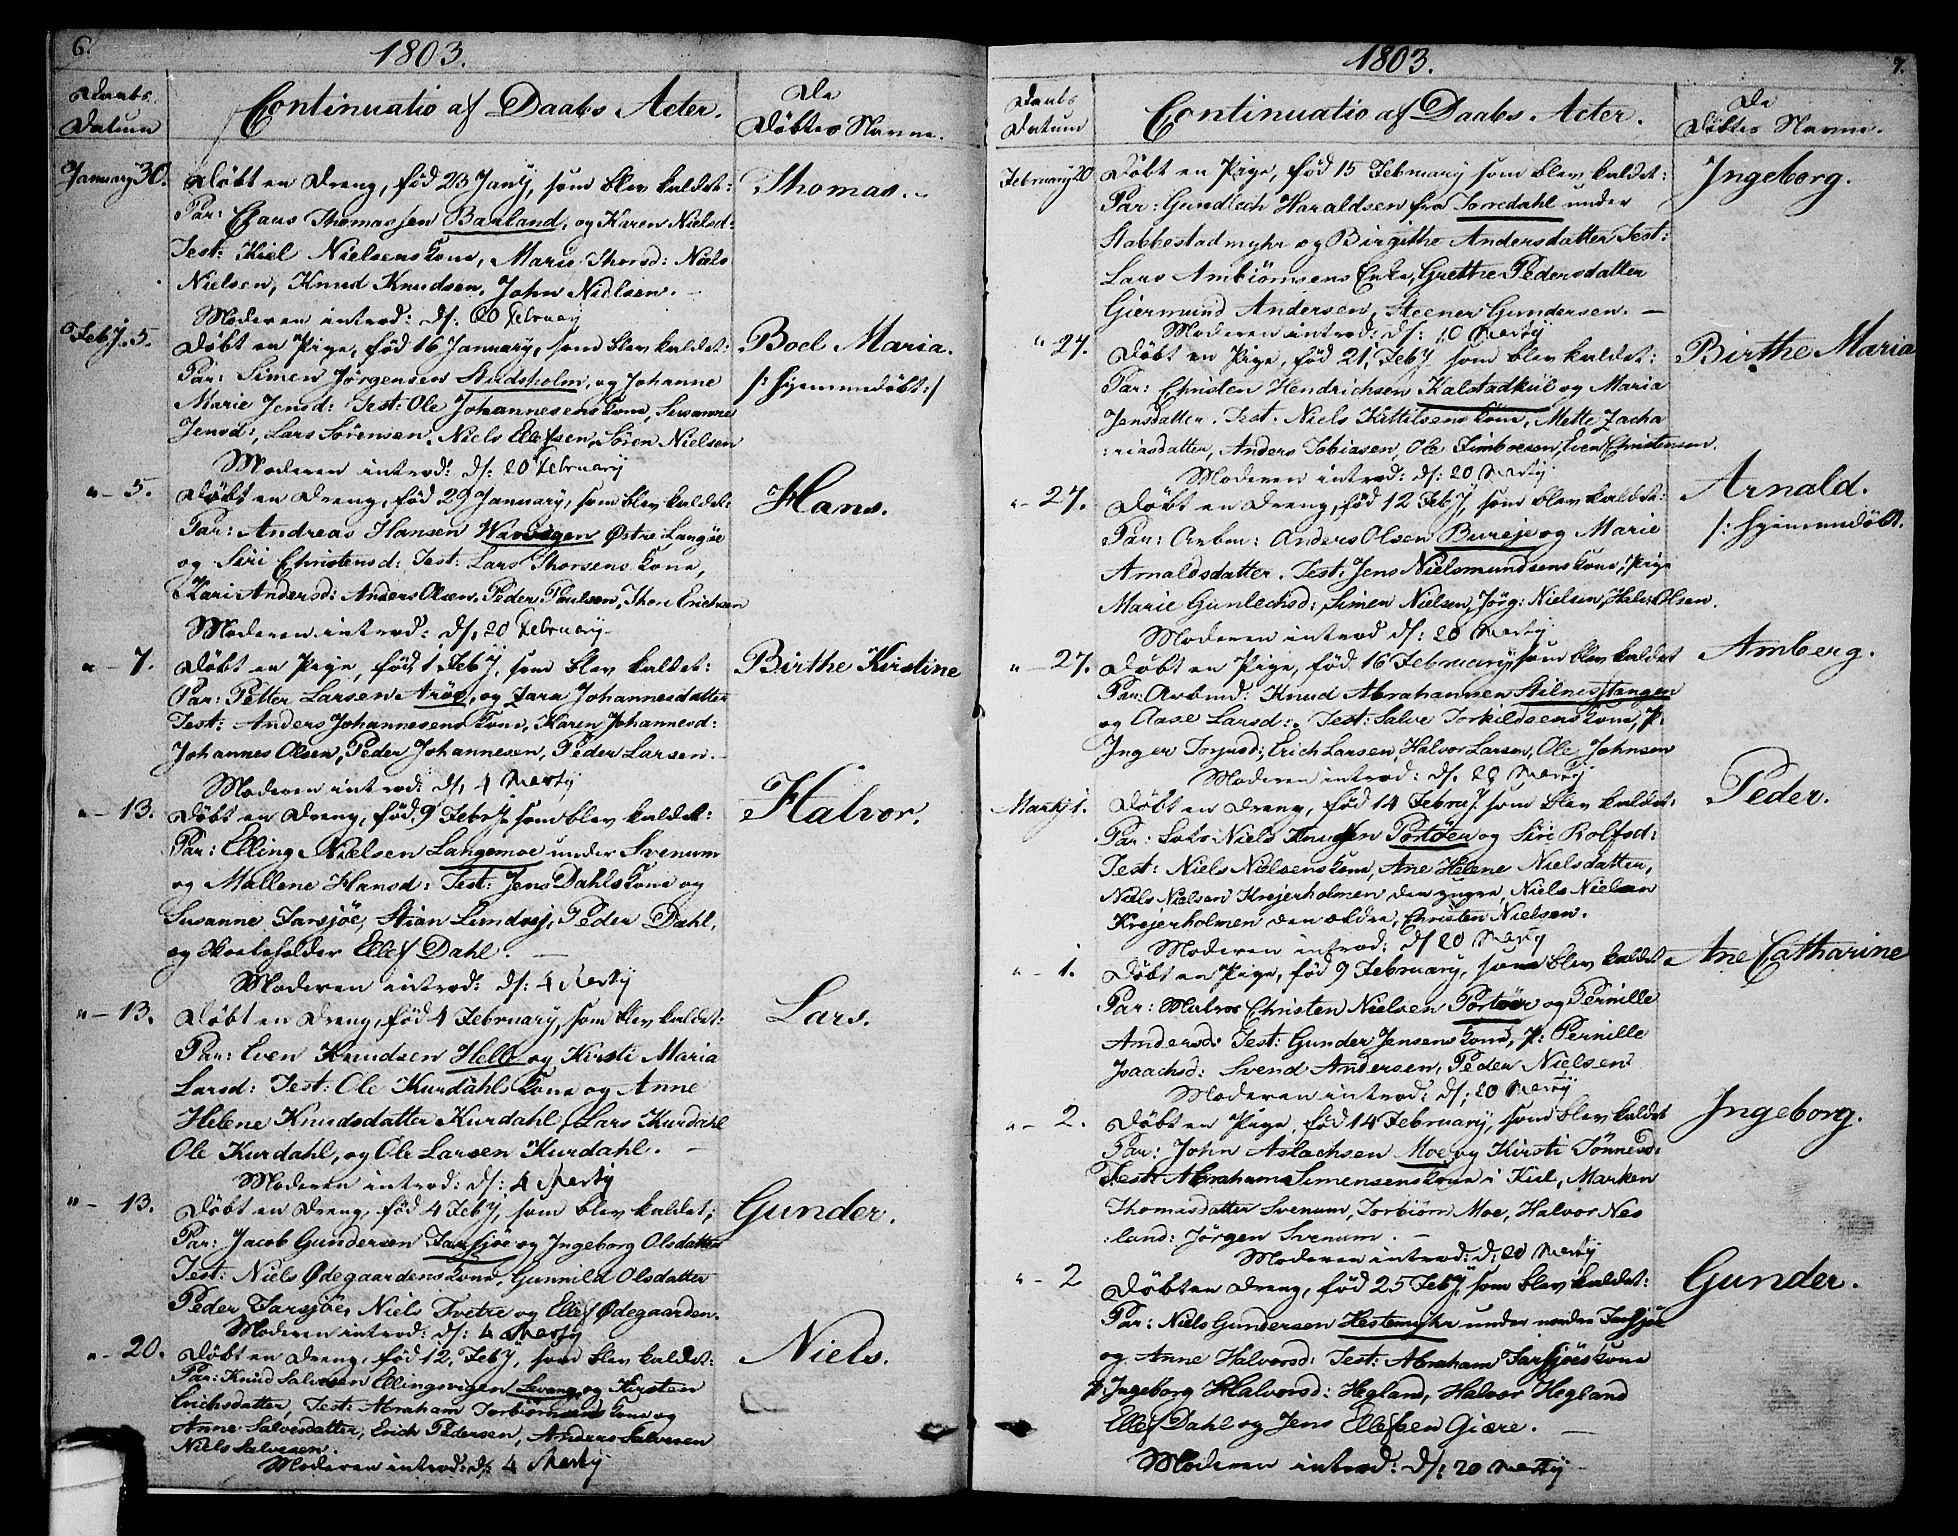 6.
1803.
Daabs
Datum
Continuatio af Daabs Acter.
De
Døbtes Navne.
January 30.
Døbt en Dreng, fød 23 Jany, som blev kaldet:
Thomas.
Par: Claus Thomassen Barland, og Karen Nielsd:
Test: Kiel Nielsens Kone, Marie Thorsd: Niels
Nielsen, Knud Knudsen, John Nielsen.
Moderen introd: d: 20 February
Feby. 5.
Døbt en Pige, fød 16 January, som blev kaldet:
Boel Maria.
/: hjemmedøbt :/
Par: Simen Jörgensen Studsholm, og Johanne
Marie Jensd: Test: Ole Johannesens Kone, Susanne
Jensd:, Lars Sörensen, Niels Ellefsen, Sören Nielsen
Moderen introd: d: 20 February
" - 5.
Døbt en Dreng, fød 29 January, som blev kaldet:
Hans.
Par: Andreas Hansen Østre Langøe
og Siri Christensd: Test: Lars Thorsens Kone,
Kari Andersd: Anders Olsen, Peder Poulsen, Thore Erichsen
Moderen introd: d: 20 February
" - 7.
Døbt en Pige, fød 1 Feby, som blev kaldet:
Birthe Kirstine
Par: Petter Larsen Arøe, og Zara Johannesdatter
Test: Anders Johannesens Kone, Karen Johannesd:
Johannes Olsen, Peder Johannesen, Peder Larsen.
Moderen introd: d: 4 Marty
" - 13.
Døbt en Dreng, fød 9 Febry. som blev kaldet:
Halvor.
Par: Elling Nielsen Langemoe under Svenum
og Mallene Hansd: Test: Jens Dahls Kone og
Susanne Farsjöe, Stian Lundvej, Peder Dahl,
og Ellef Dahl.
Moderen introd: d: 4 Marty
" - 13.
Døbt en Dreng, fød 4 February, som blev kaldet:
Lars.
Par: Even Knudsen Helle og Kirsti Maria
Larsd: Test: Ole Kurdahls Kone og Anne
Helene Knudsdatter Kurdahl, Lars Kurdahl
Ole Kurdahl, og Ole Larsen Kurdahl.
Moderen introd: d: 4 Marty
" - 13.
Døbt en Dreng, fød 4 Feby, som blev kaldet;
Gunder.
Par: Jacob Gundersen Farsjöe og Ingeborg Olsdatter
Test: Niels Ødegaardens Kone, Gunnild Olsdatter
Peder Farsjöe, Niels Tvetre og Ellef Ødegaarden.
Moderen introd: d: 4 Marty
" - 20.
Døbt en Dreng, fød 12 Feby, som blev kaldet:
Niels.
Par: Knud Salvesen Ellingsvigen Levang, og Kirsten
Erichsdatter, Test: Abraham Torbiörnsens Kone og
Anne Salvesdatter, Erich Pedersen, Anders Salvesen
Niels Salvesen.
Moderen introd: d: 4 Marty
1803.
7.
Daabs
Datum
Continuatio af Daabs Acter.
De
Døbtes Navne.
February 20
Døbt en Pige, fød 15 February som blev kaldet:
Ingeborg.
Par: Gundlech Haraldsen fra Torredahl under
Stabbestadmyhr og Birgithe Andersdatter Test:
Lars Ambiörnsens Enke, Grethe Pedersdatter
Giermund Andersen, Steener Gundersen.
Moderen introd: d: 20 Marty
" 27.
Døbt en Pige, fød 21 Feby som blev kaldet:
Birthe Maria
Par: Christen Hendrichsen Kalstadkiil og Maria
Jensdatter. Test. Niels Kittilsens Kone, Mette Zacha
:riasdatter, Anders Tobiasen, Ole Timboesen, Even Christensen.
Moderen introd: d: 20 Marty
" - 27.
Døbt en Dreng, fød 12 Feby, som blev kaldet:
Arnald.
/: hjemmedøbt.
Par: Arbm: Anders Olsen Bureje og Marie
Arnaldsdatter. Test: Jens Nielsmundsens Kone, Pige
Marie Gunlechsd:, Simen Nielsen, Jörg: Nielsen, Halv: Olsen.
Moderen introd d: 20 Marty
" - 27.
Døbt en Pige, fød 16 February, som blev kaldet
Amberg.
Par: Arbmd: Knud Abrahamsen Stilnestangen
og Aase Larsd:. Test: Salve Torkildsens Kone, P.
Inger Torjusd:, Erich Larsen, Halvor Larsen, Ole Johnsen
Moderen introd: d: 20 Marty
Marty 1.
Døbt en Dreng, fød 14 Febru. som blev kaldet:
Peder.
Par: Lots Niels Knudsen Portøer og Siri Rolfsd:
Test: Niels Nielsens Kone, Ane Helene Nielsdatter,
Niels Nielsen Krejerholmen den yngre, Niels Nielsen
Krejerholmen den ældre, Christen Nielsen.
Moderen introd: d 20 Marty
" - 1.
Døbt en Pige, fød 9 February, som blev kaldet
Ane Catharine
Par: Matros Christen Nielsen Portøer og Pernille
Andersd: Test: Gunder Jensens Kone, P: Pernille
Isaachsd: Svend Andersen, Peder Nielsen
Moderen introd: d: 20 Marty
" - 2.
Døbt en Pige, fød 14 February, som blev kaldet
Ingeborg.
Par: John Aslachsen Moe og Kirsti Tönnesd:
Test: Abraham Simensens Kone i Kiil, Marken
Thomasdatter Svenum, Torbiörn Moe, Halvor Nes
:land: Jörgen Svenum.
Moderen introd: d: 20 Marty
" - 2
Døbt en Dreng, fød 25 Feby, som blev kaldet:
Gunder.
Par: Niels Gundersen Hestemyhr under nordre Farsjöe
og Anne Halvorsd: Test: Abraham Farsjöes Kone
P: Ingeborg Halvorsd: Hegland, Halvor Hegland
Ellef Dahl og Jens Ellefsen Giære.
Moderen introd: d: 20 Marty